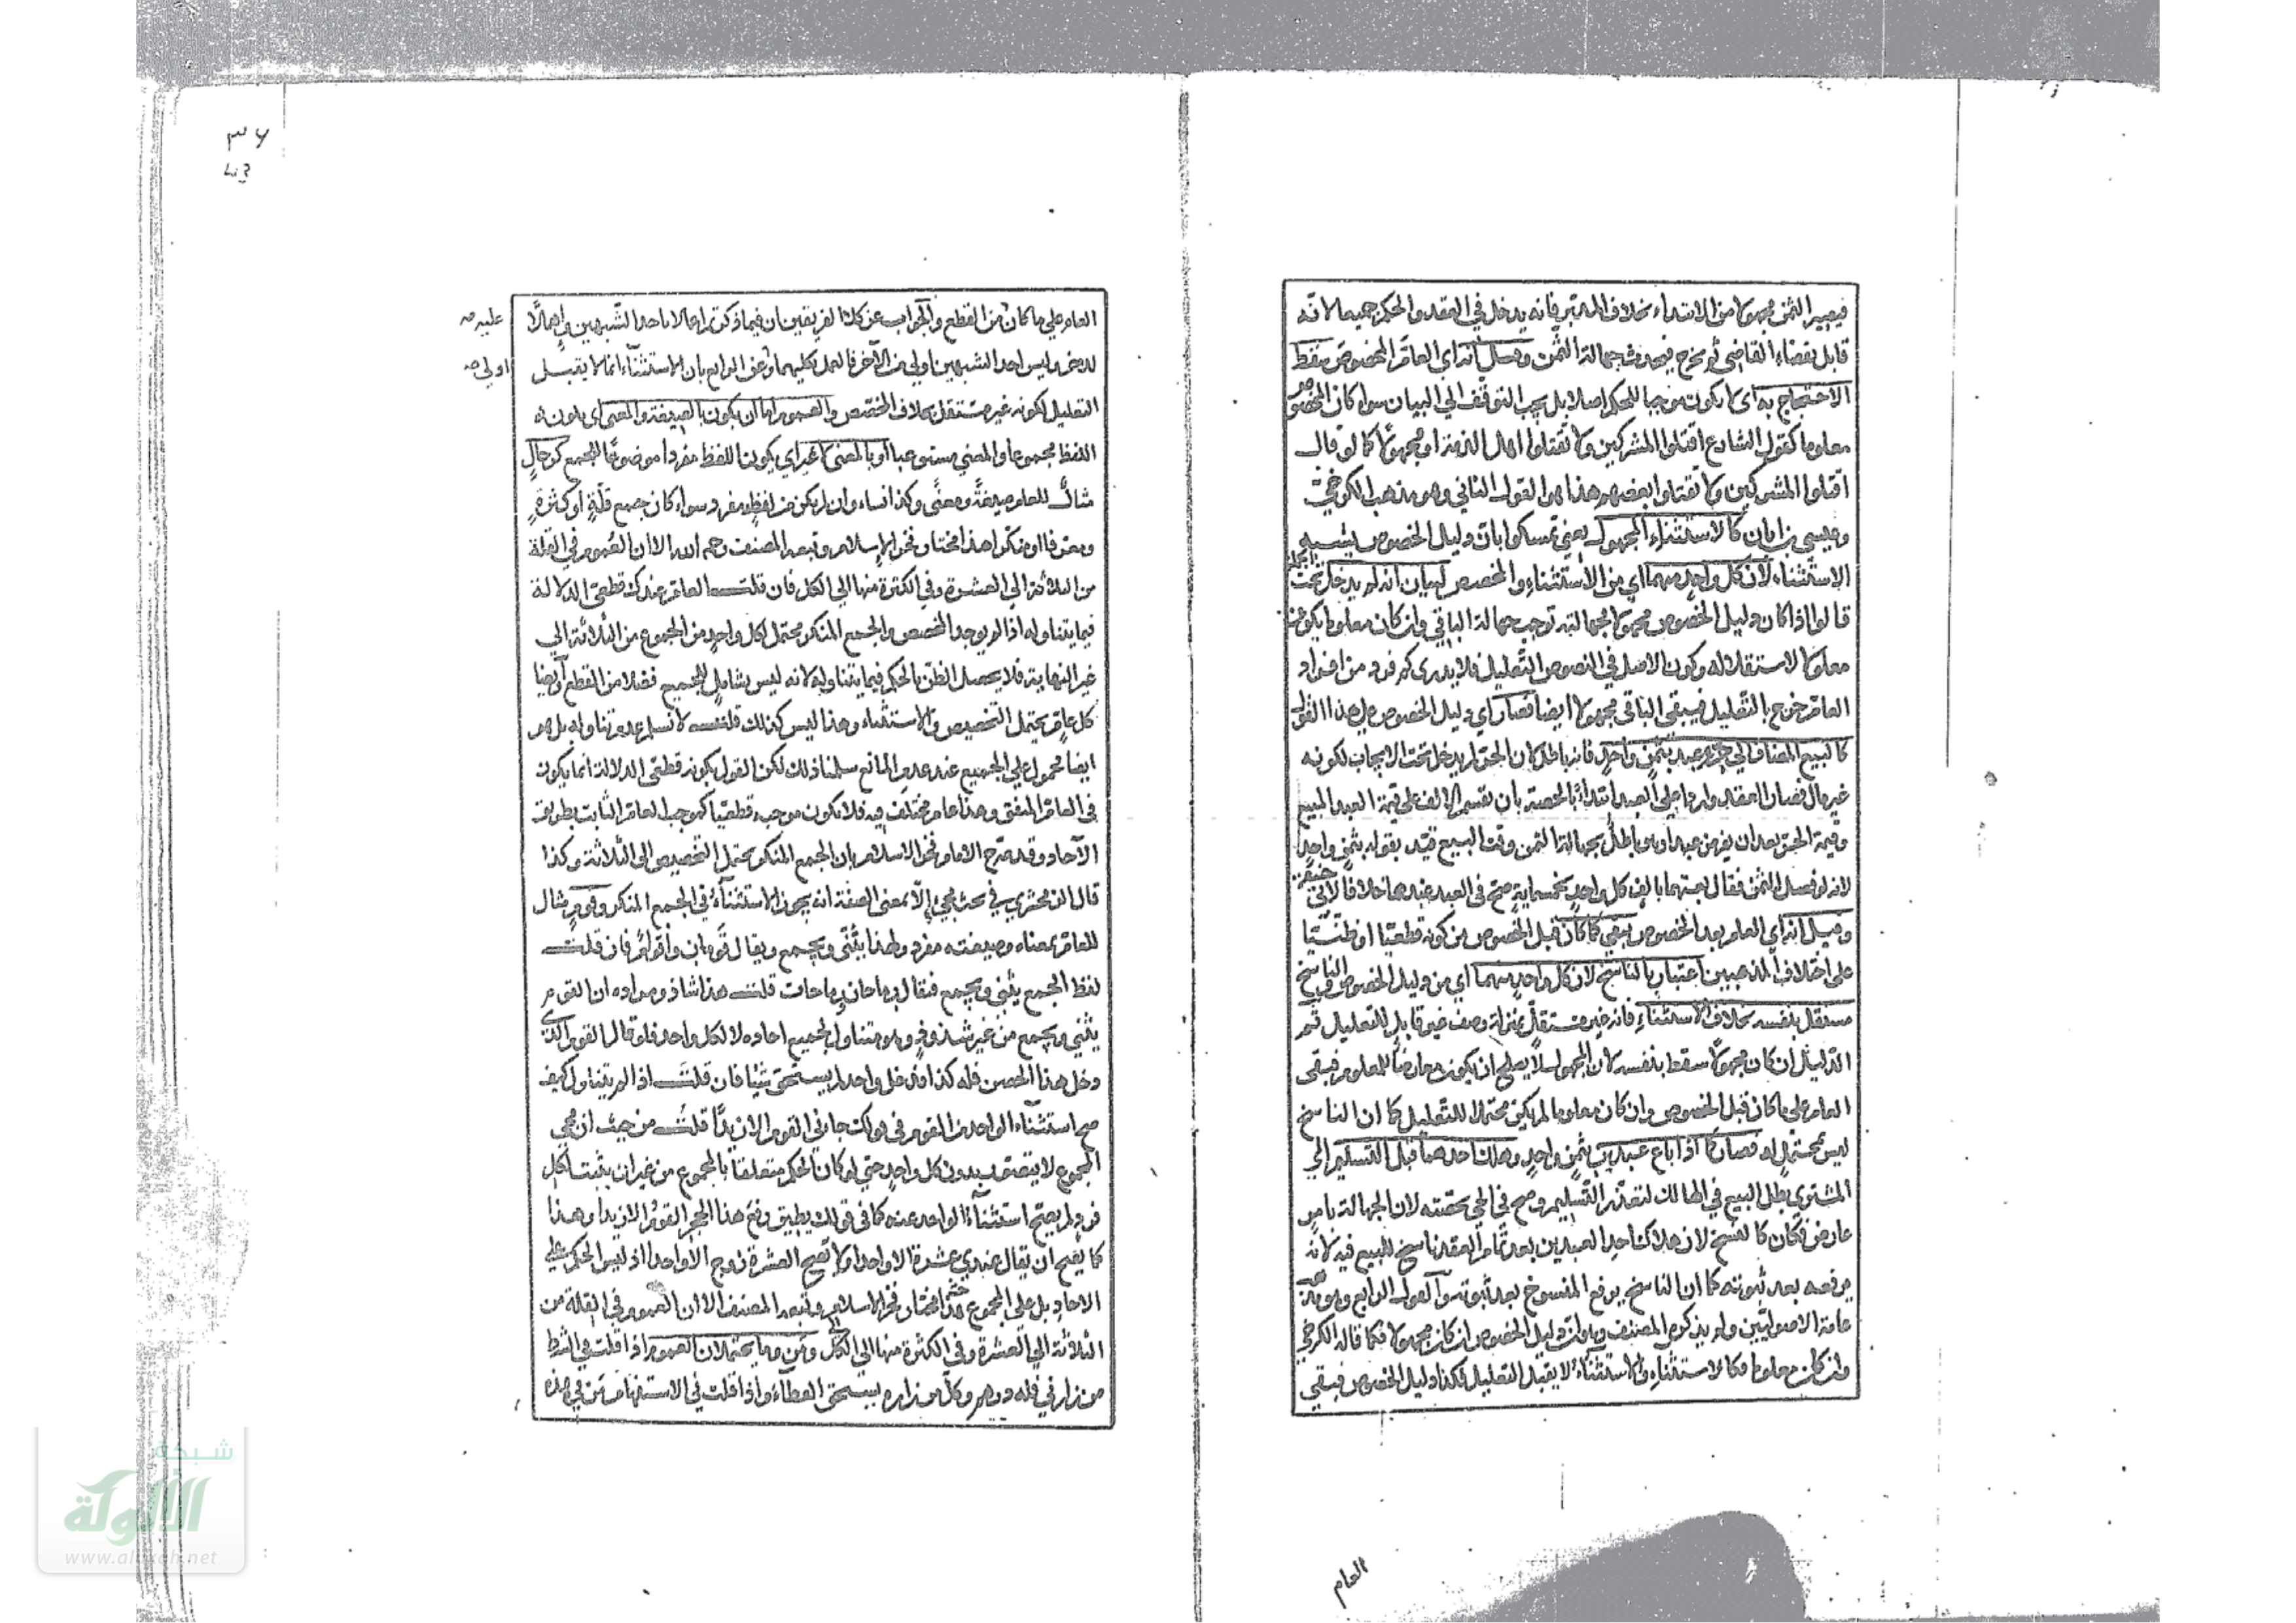 فيصير الثمن مجهولا من الابتداء بخلاف المدبر فانه يدخل في العقد والحكم جميعا لانه
قابل بقضاء القاضي ثم يخرج فيحدث جهالة الثمن وقيل انه اي العام المخصوص يسقط
الاحتجاج به اي لا يكون موجبا للحكم اصلا بل يجب التوقف الي البيان سواء كان المخصوص
معلوما كقول الشارع اقتلوا المشركين ولا تقتلوا اهل الذمة او مجهولا كما لو قال
اقتلوا المشركين ولا تقتلوا بعضهم وهذا هو القول الثاني وهو مذهب الكرخي
وعيسي بن ابان كالاستثناء المجهول يعني تمسكوا بان دليل الخصوص يشبه
الاستثناء لان كل واحد منهما اي من الاستثناء والمخصص لبيان انه لم يدخل تحت الجملة
قالوا اذا كان دليل الخصوص مجهولا فجهالته توجب جهالة الباقي وان كان معلوما يكون
معلولا لاستقلاله وكون الاصل في النصوص التعليل فلا يدري كم فرد من افراد
العام خرج بالتعليل فيبقي الباقي مجهولا ايضا فصار اي دليل الخصوص علي هذا القول
كالبيع المضاف الي حر وعبد بثمن واحد فانه باطل لان الحر لم يدخل تحت الايجاب لكونه
غير مال فصار العقد واردا علي العبد ابتداء بالحصة بان يقسم الالف علي قيمة العبد المبيع
وقيمة الحر بعد ان يفرض عبدا وهو باطل بجهالة الثمن وقت البيع قيد بقوله بثمن واحد
لانه لو فصل الثمن فقال بعتهما بالف كل واحد بخمسماية صح في العبد عندهما خلافا لابي حنيفة
وقيل انه اي العام بعد الخصوص يبقي كما كان قبل الخصوص من كونه قطعيا او ظنيا
علي اختلاف المذهبين اعتبارا بالناسخ لان كل واحد منهما اي من دليل الخصوص والناسخ
مستقل بنفسه بخلاف الاستثناء فانه غير مستقل بمنزلة وصف غير قابل للتعليل ثم
الدليل ان كان مجهولا سقط بنفسه لان المجهول لا يصلح ان يكون معارضا للمعلوم فبقي
العام علي ما كان قبل الخصوص وان كان معلوما لم يكن محتملا للتعليل كما ان الناسخ
ليس بمحتمل له فصار كما اذا باع عبدين بثمن واحد وهلك احدهما قبل التسليم الي
المشتري بطل البيع في الهالك لتعذر التسليم وصح في الحي بحصته لان الجهالة بامر
عارض فكان كالنسخ لان هلاك احد العبدين بعد تمام العقد ناسخ للبيع فيه لانه
يرفعه بعد ثبوته كما ان الناسخ يرفع المنسوخ بعد ثبوته والقول الرابع وهو
عامة الاصوليين ولم يذكره المصنف وهو ان دليل الخصوص ان كان مجهولا فكما قاله الكرخي
وان كان معلوما فكالاستثناء والاستثناء لا يقبل التعليل فكذا دليل الخصوص فبقي
العام
٣٦
العام علي ما كان من القطع والجواب عن كلا الفريقين ان فيما ذكرتم اعمالا باحد الشبهين واهمالا
عليه صح
للاخر وليس احد الشبهين اولي من الآخر فالعمل بكليهما وعن الرابع بان الاستثناء انما لا يقبل
اولي صح
التعليل لكونه غير مستقل بخلاف المخصص والعموم اما ان يكون بالصيغة والمعني اي بكون
اللفظ مجموعا والمعني مستوعبا او بالمعني لا غير اي يكون اللفظ مفردا موضوعا للجمع كرجال
مثال للعام صيغة ومعني وكذا نساء وان لم يكن من لفظه مفرد سواء كان جمع قلة او كثرة
ومعرفا او منكرا هذا مختار فخر الاسلام وتبعه المصنف رحمه الله الا ان العموم في القلة
من الثلاثة الي العشرة وفي الكثرة منها الي الكل فان قلت العام عندك قطعي الدلالة
فيما يتناوله اذا لم يوجد المخصص والجمع المنكر محتمل لكل واحد من الجموع من الثلاثة الي
غير النهاية فلا يحصل الظن بالحكم فيما يتناوله لانه ليس بشامل للجميع فضلا من القطع وايضا
كل عام يحتمل التخصيص والاستثناء وهذا ليس كذلك قلت لا نسلم عدم تناوله بل هو
ايضا محمول علي الجميع عند عدم المانع سلمنا ذلك لكن القول بكونه قطعي الدلالة انما يكون
في العام المتفق وهذا عام مختلف فيه فلا يكون موجبه قطعيا كموجب العام الثابت بطريق
الآحاد وقد صرح الامام فخر الاسلام بان الجمع المنكر يحتمل التخصيص الي الثلاثة وكذا
قال الزمخشري في بحث مجئ الا بمعني الصفة انه يجوز الاستثناء في الجمع المنكر وقوم مثال
للعام بمعناه وصيغته مفرد ولهذا يثني ويجمع ويقال قومان واقوام فان قلت
لفظ الجمع يثني ويجمع فيقال رماحان ورماحات قلت هذا شاذ ومراده ان القوم
يثني ويجمع من غير شذوذ وهو متناول لجميع احاده لا لكل واحد فلو قال القوم الذي
دخل هذا الحصن فله كذا فدخل واحد لم يستحق شيئا فان قلت اذا لم يتناول كيف
صح استثناء الواحد من القوم في قولك جاءني القوم الا زيدا قلت من حيث ان مجي
المجموع لا يتصور بدون كل واحد حتي لو كان الحكم متعلقا بالمجموع من غير ان يثبت لكل
فرد لم يصح استثناء الواحد عنه كما في قولك يطيق رفع هذا الحجر القوم الا زيدا وهذا
كما يصح ان يقال عندي عشرة الا واحدا ولا تصح العشرة زوج الا واحدا اذ ليس الحكم علي
الاحاد بل علي المجموع هذا مختار فخر الاسلام وتبعه المصنف الا ان العموم في القلة من
الثلاثة الي العشرة وفي الكثرة منها الي الكل ومن وما يحتملان العموم اذا قلت في الشرط
من زارني فله درهم وكل من زاره يستحق العطاء واذا قلت في الاستفهام من في هذه
شبكة
الألوكة
www.alukah.net